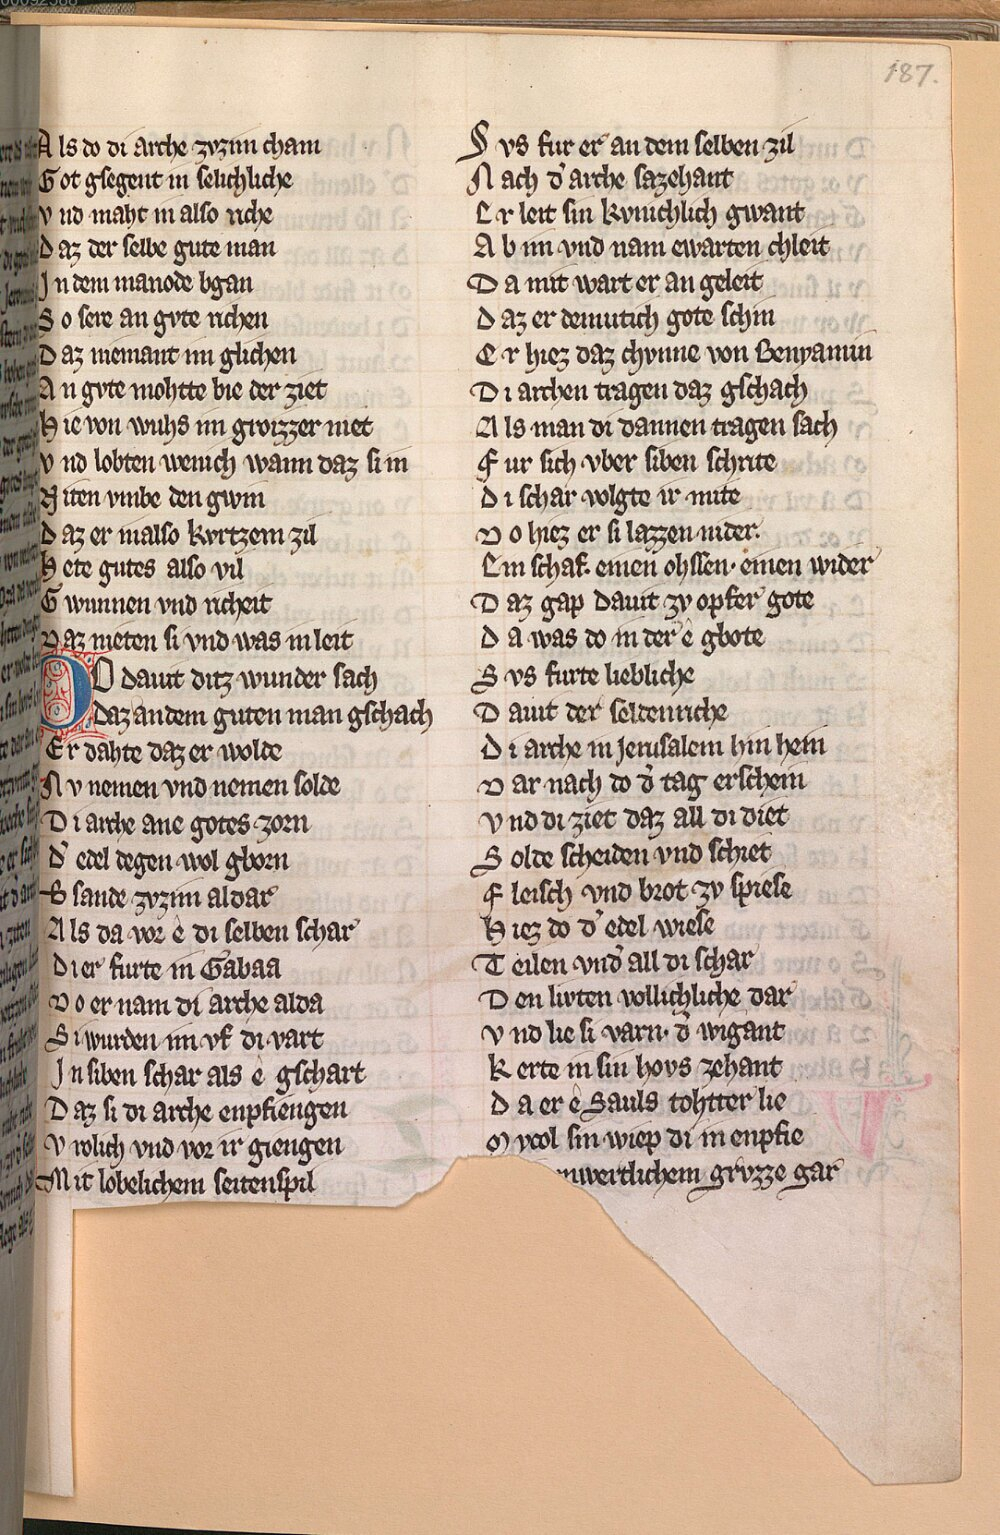 187.
A ls do di arche zvzim cham
G ot gsegent in selichliche
V nd maht in also riche
D az der selbe gute man
J n dem manode bgan
S o sere an gvte richen
D az niemant im glichen
A n gvte mohtte bie der ziet
H ie von wuhs im groizzer niet
V nd lobten wenich wann daz si in
N iten vmbe den gwin
D az er in also kvrtzem zil
H ete gutes also vil
G wunnen vnd richeit
D az nieten si vnd was in leit
D O dauit ditz wunder sach
Daz an dem guten man gschach
E r dahte daz er wolde
N v nemen vnd nemen solde
D i arche ane gotes zorn
D' edel degen wol gborn
B sande zvzim aldar
A ls da vor è di selben schar
D i er furte in Gabaa
D o er nam di arche alda
S i wurden im vf di vart
J n siben schar als è gschart
D az si di arche enpfiengen
V rolich vnd vor ir giengen
M it lobelichem seitenspil
S vs fur er an dem selben zil
N ach d' arche sazehant
E r leit sin kvnichlich gwant
A b im vnd nam ewarten chleit
D a mit wart er an geleit
D az er demutich gote schin
E r hiez daz chvnne von Benyamin
D i archen tragen daz gschach
A ls man di dannen tragen sach
F ur sich vber siben schrite
D i schar volgte ir mite
D o hiez er si lazzen nider.
E in schaf. einen ohssen. einen wider
D az gap dauit zv opfer gote
D a was do in der è gbote
S vs furte liebliche
D auit der seldenriche
D i arche in Jerusalem hin heim
D ar nach do d' tag erschein
V nd di ziet daz all di diet
S olde scheiden vnd schiet
F leisch vnd brot zv spiese
H iez do d' edel wiese
T eilen vnd' all di schar
D en livten vollichliche dar
V nd lie si varn. d' wigant
K erte in sin hovs zehant
D a er è Sauls tohtter lie
M ycol sin wiep di in enpfie
nwertlichem grvzze gar